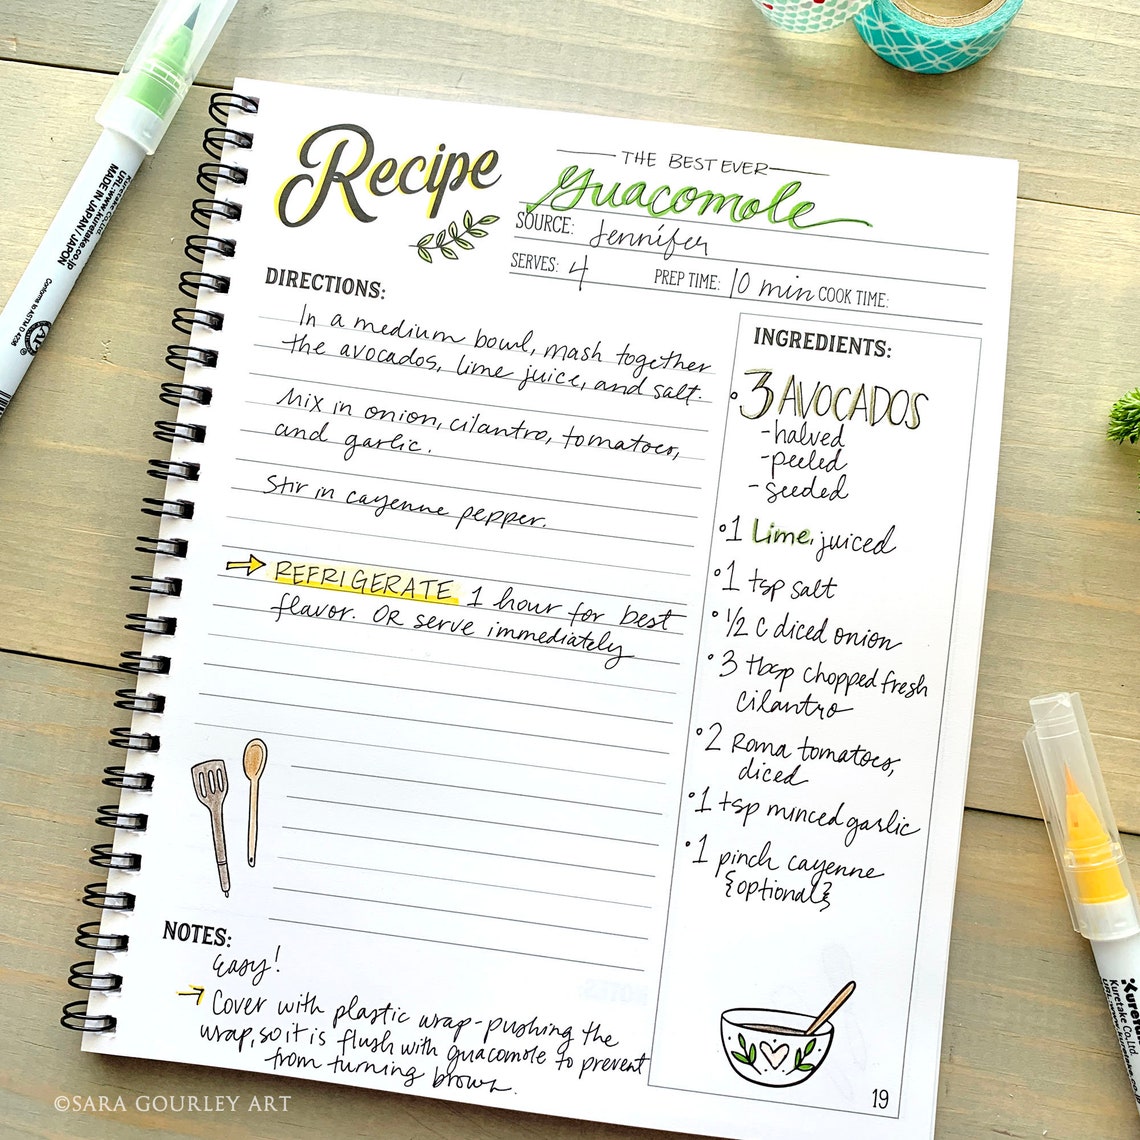 Recipe
THE BEST EVER
guacomole
SOURCE: Jennifer
SERVES: 4 PREP TIME: 10 min COOK TIME:
DIRECTIONS:
In a medium bowl, mash together
the avocados, lime juice, and salt.
Mix in onion, cilantro, tomatoes,
and garlic.
Stir in cayenne pepper.
REFRIGERATE 1 hour for best
flavor. OR serve immediately
INGREDIENTS:
•3 AVOCADOS
-halved
-peeled
-seeded
•1 Lime, juiced
•1 tsp salt
•1/2 C diced onion
•3 tbsp chopped fresh
cilantro
•2 Roma tomatoes,
diced
•1 tsp minced garlic
•1 pinch cayenne
{optional}
NOTES:
Easy!
Cover with plastic wrap-pushing the
wrap, so it is flush with guacomole to prevent
from turning brown.
19
©SARA GOURLEY ART
Kuretake Co.,Ltd.
URL:www.kuretake.co.jp
MADE IN JAPAN / JAPON
Conforms to ASTM D 4236
Kuretake Co.,Ltd.